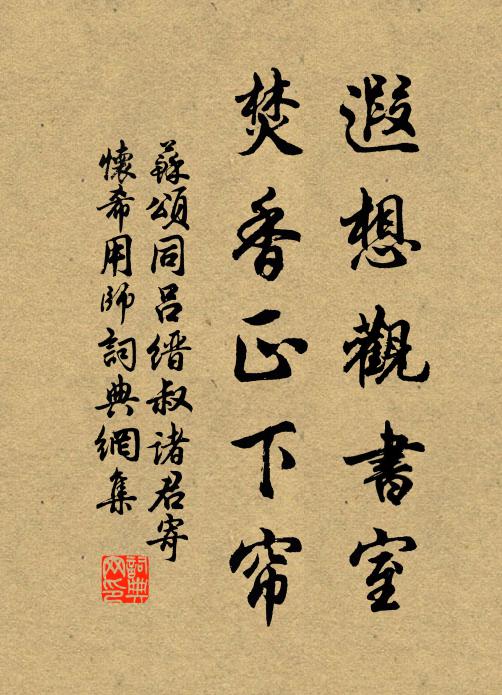 遐想觀書室
焚香正下帘
蘇頌同呂縉叔诸君寄
懷希用師詞典網集
詞典
网印